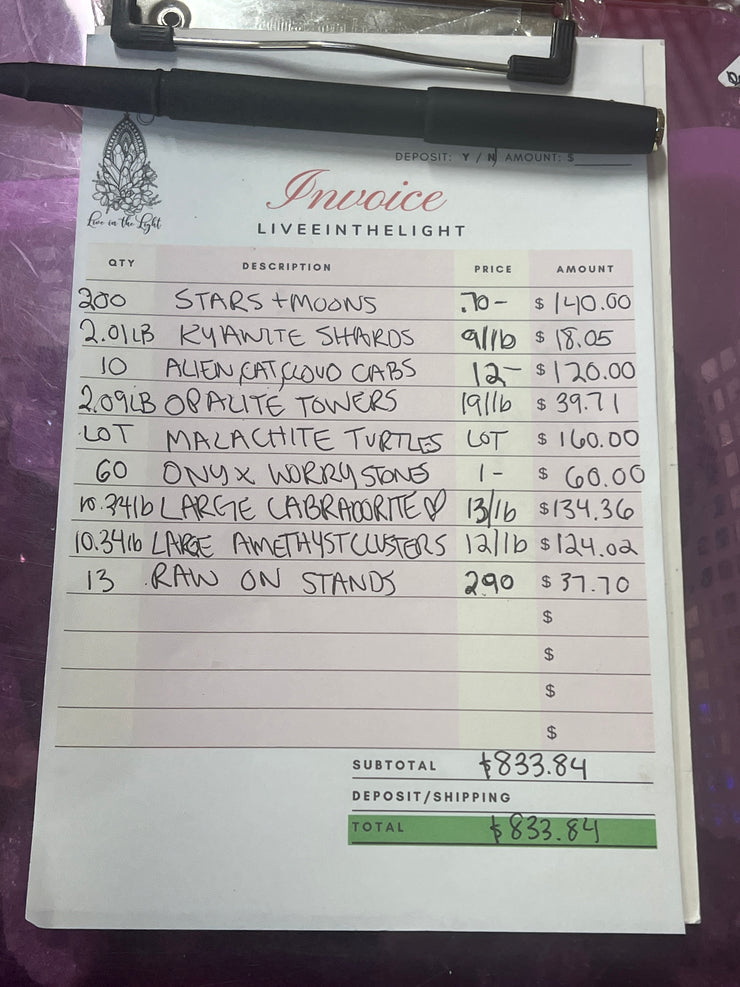 DEPOSIT: Y / N AMOUNT: $
Live in the Light
Invoice
LIVEEINTHELIGHT
QTY DESCRIPTION PRICE AMOUNT
200 STARS + MOONS .70- $ 140.00
2.01LB KYANITE SHARDS 9/lb $ 18.05
10 ALIEN, CAT, CLOUD CABS 12- $ 120.00
2.09LB OPALITE TOWERS 19/lb $ 39.71
LOT MALACHITE TURTLES LOT $ 160.00
60 ONYX WORRY STONES 1- $ 60.00
10.34lb LARGE LABRADORITE ♡ 13/lb $134.36
10.34lb LARGE AMETHYST CLUSTERS 12/lb $124.02
13 RAW ON STANDS 2.90 $ 37.70
$
$
$
$
SUBTOTAL $833.84
DEPOSIT/SHIPPING
TOTAL $833.84